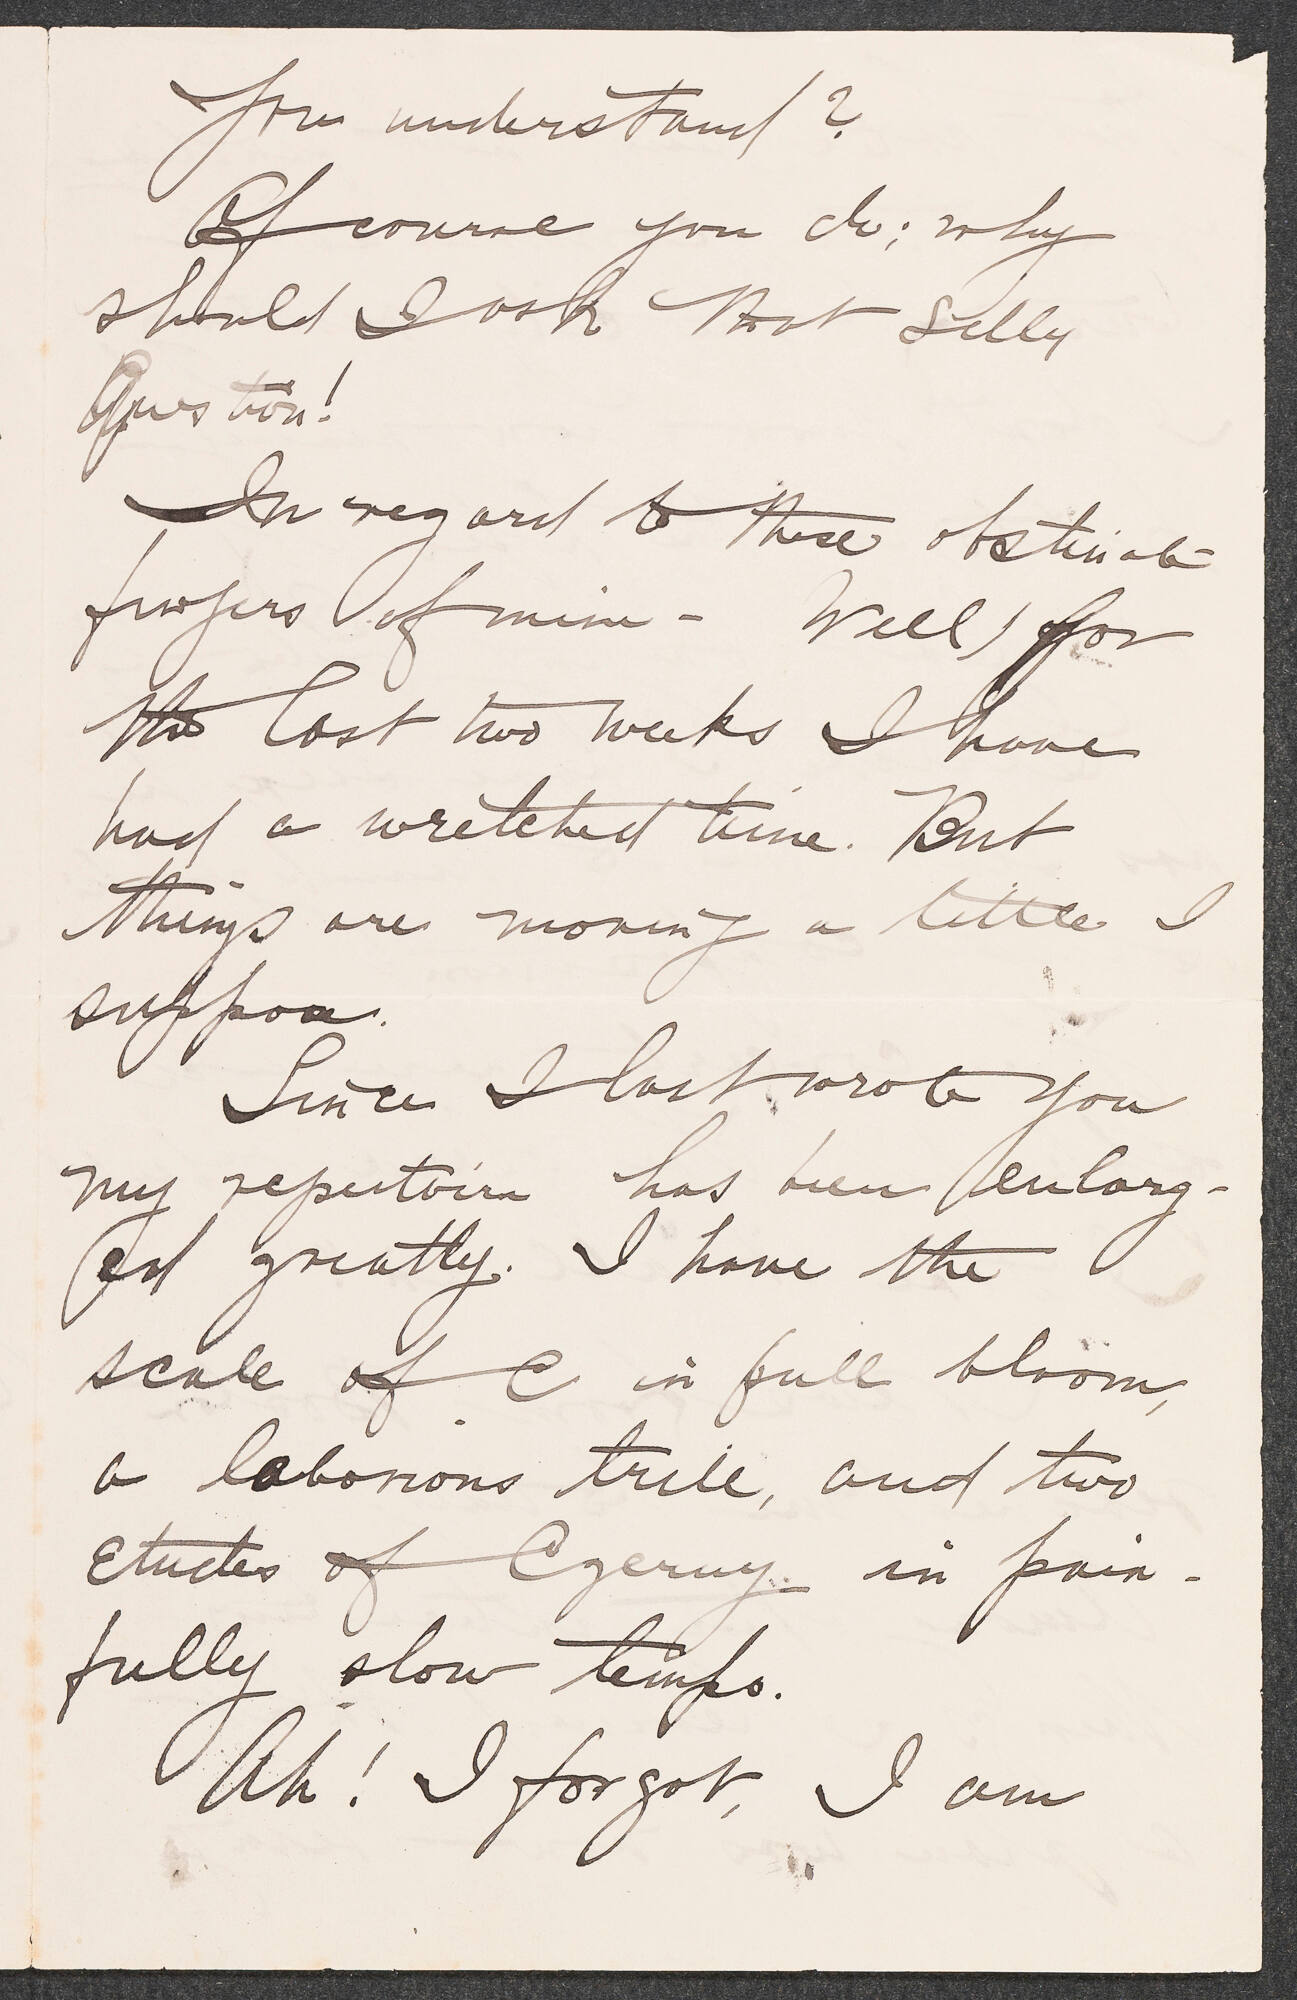 You understand?
Of course you do; why
should I ask that Silly
Question!
In regard to these obstinate
fingers of mine - Well, for
the last two weeks I have
had a wretched time. But
things are moving a little I
suppose.
Since I last wrote you
my repertoire has been enlarg-
ed greatly. I have the
scale of C in full bloom,
a laborious trill, and two
Etudes of Czerny in pain-
fully slow tempo.
Ah! I forgot, I am